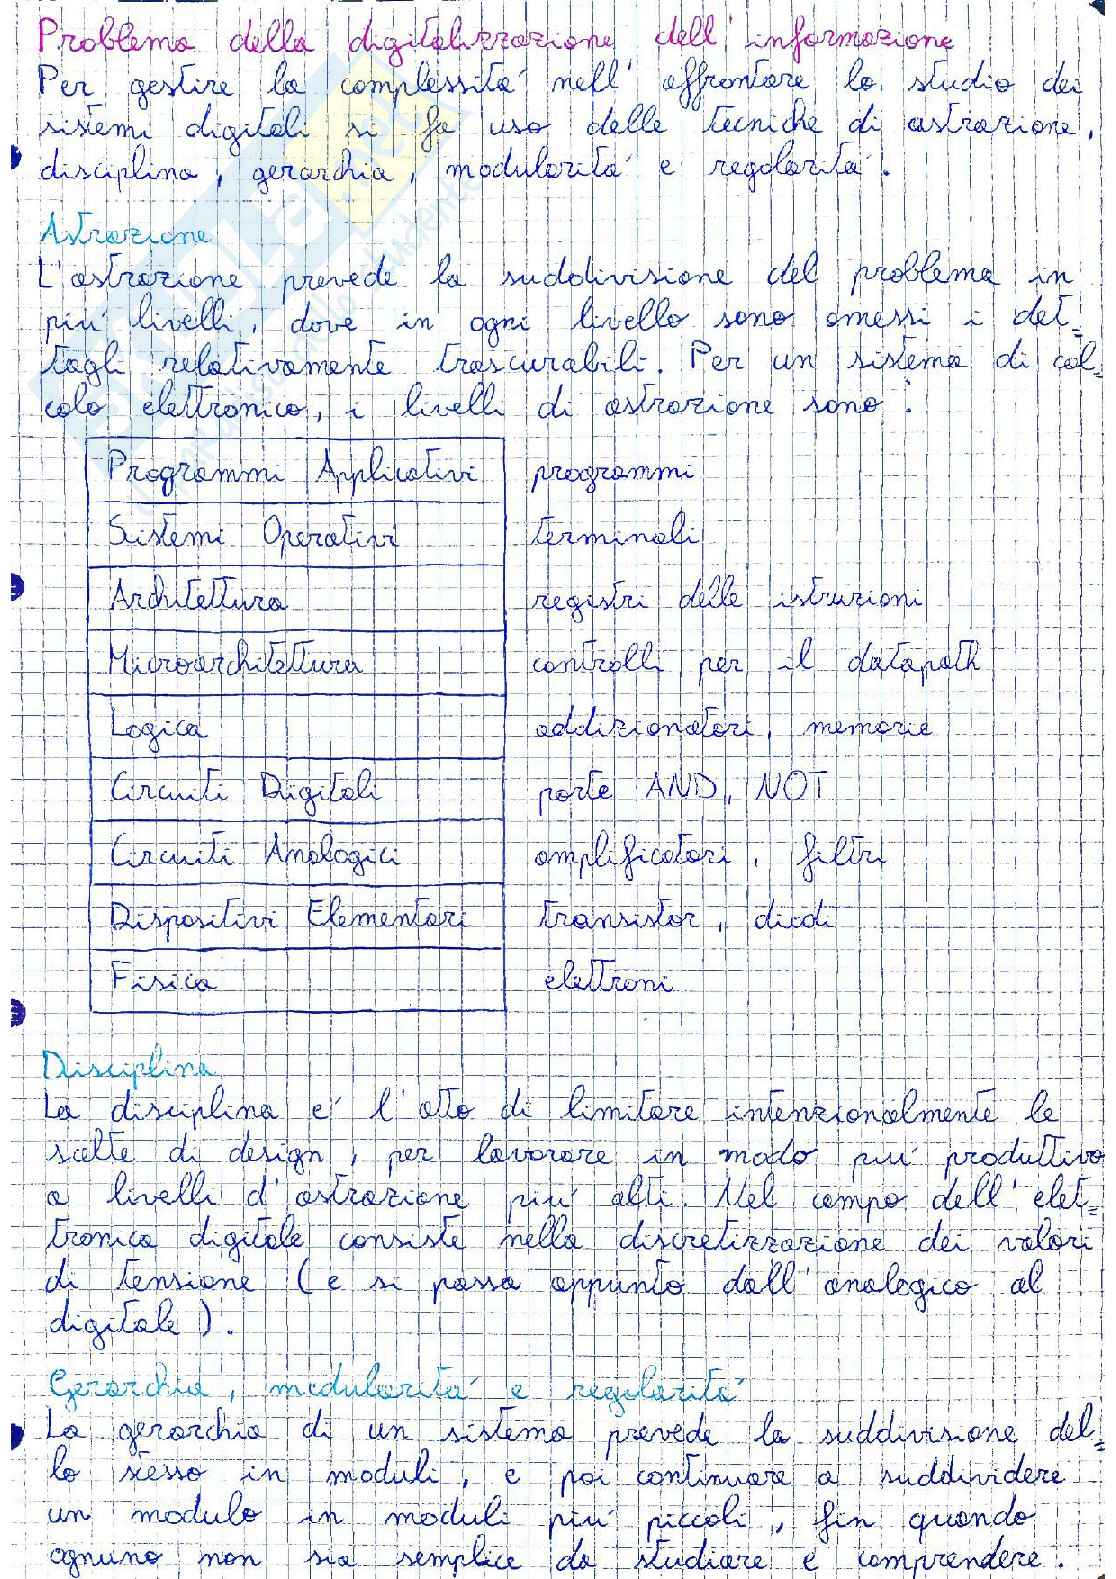 Problema della digitalizzazione dell'informazione
Per gestire la complessità nell'affrontare lo studio dei
sistemi digitali si fa uso delle tecniche di astrazione,
disciplina, gerarchia, modularità e regolarità.
Astrazione
L'astrazione prevede la suddivisione del problema in
più livelli, dove in ogni livello sono omessi i det=
tagli relativamente trascurabili. Per un sistema di cal=
colo elettronico, i livelli di astrazione sono:
Programmi Applicativi programmi
Sistemi Operativi terminali
Architettura registri delle istruzioni
Microarchitettura controlli per il datapath
Logica addizionatori, memorie
Circuiti Digitali porte AND, NOT
Circuiti Analogici amplificatori, filtri
Dispositivi Elementari transistor, diodi
Fisica elettroni
Disciplina
La disciplina è l'atto di limitare intenzionalmente le
scelte di design, per lavorare in modo più produttivo
a livelli d'astrazione più alti. Nel campo dell'elet=
tronica digitale consiste nella discretizzazione dei valori
di tensione (e si passa appunto dall'analogico al
digitale).
Gerarchia, modularità e regolarità
La gerarchia di un sistema prevede la suddivisione del=
lo stesso in moduli, e poi continuare a suddividere
un modulo in moduli più piccoli, fin quando
ognuno non sia semplice da studiare e comprendere.